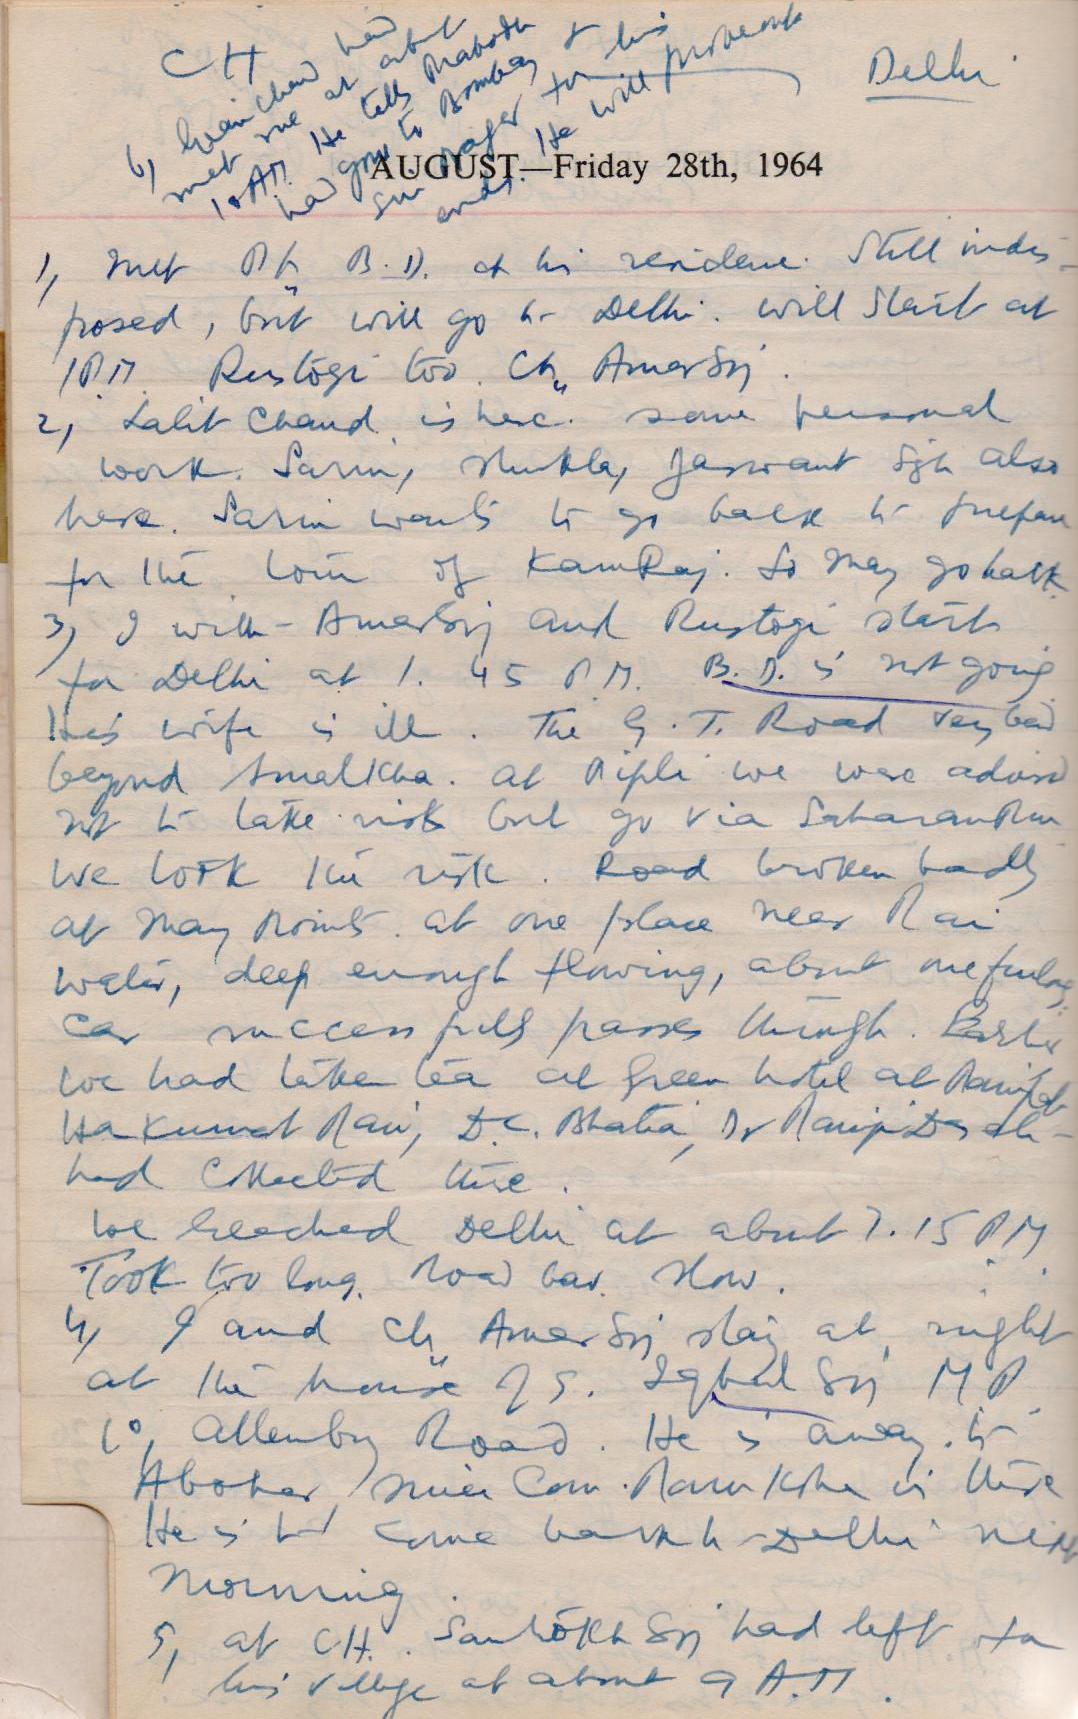 CH
Delhi
6, Gianchand had
met me at about
10 AM. He tells Prabodh
had gone to Bombay & his
for his
ends. He will
AUGUST—Friday 28th, 1964
1, Met Pt. B.D. at his residence. Still indis-
posed, but will go to Delhi. will start at
1 P.M. Rustogi too. Ch. Amar Sgh.
2, Lalit Chand is here. some personal
work. Sarin, Shukla, Jaswant Sgh also
here. Sarin wants to go back to prepare
for the tour of KamRaj. So may go back
3, I with Amar Sgh and Rustogi start
for Delhi at 1.45 P.M. B.D. is not going
His wife is ill. The G.T. Road very bad
beyond Smalkha. at Pipli we were advised
not to take risk but go via Saharanpur
We took the risk. Road broken badly
at many points. at one place near Rai
water, deep enough flowing, about one furlong.
Car successfully passes through. Earlier
we had taken tea at Green hotel at Panipat
Hakumat Rai, D.C. Bhatia, Dr
had collected there.
We reached Delhi at about 7.15 PM
Took too long. Road bad. Slow.
4, I and Ch. Amar Sgh stay at night
at the house of S. Iqbal Sgh MP
10, Allenby Road. He is away to
Abohar, since Com. Ram Kishan is there
He is to come back to Delhi next
morning.
5, at CH. Santokh Sgh had left for
his village at about 9 A.M.